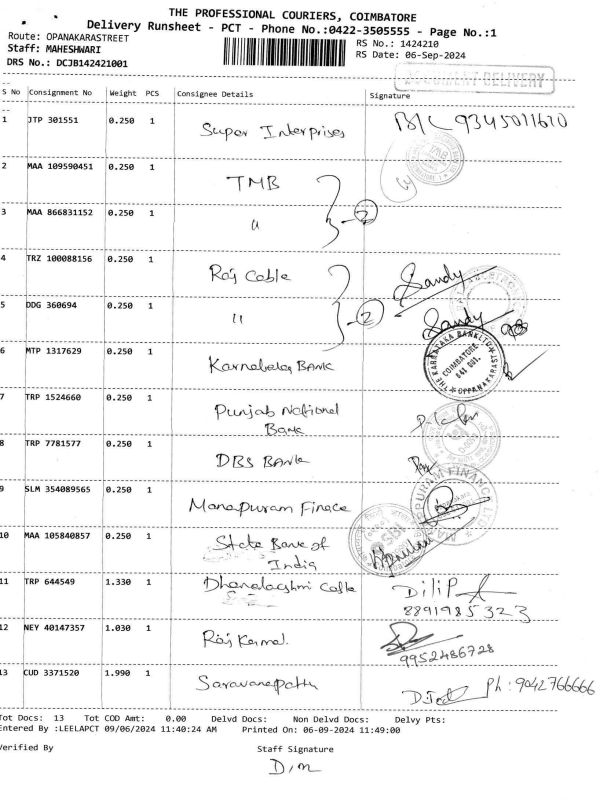 THE PROFESSIONAL COURIERS, COIMBATORE
Delivery Runsheet - PCT - Phone No.:0422-3505555 - Page No.:1
Route: OPANAKARASTREET
RS No.: 1424210
Staff: MAHESHWARI
RS Date: 06-Sep-2024
DRS No.: DCJB142421001
DOCUMENT DELIVERY
S No Consignment No Weight PCS Consignee Details Signature
1 JTP 301551 0.250 1 Super Interprises 9345011610
2 MAA 109590451 0.250 1 TMB
3 MAA 866831152 0.250 1 "
2
4 TRZ 100088156 0.250 1 Raj Cable Sandy
5 DDG 360694 0.250 1 " Sandy
2
THE KARNATAKA BANK LTD
COIMBATORE
641 001.
OPPANAKARAST
6 MTP 1317629 0.250 1 Karnataka BANK
7 TRP 1524660 0.250 1 Punjab National
Bank
8 TRP 7781577 0.250 1 DBS BANK
9 SLM 354089565 0.250 1 Manapuram Finace
10 MAA 105840857 0.250 1 State Bank of
India
11 TRP 644549 1.330 1 Dhanalacshmi Cable Dilip
8891985323
12 NEY 40147357 1.030 1 Raj Kamal.
9952486728
13 CUD 3371520 1.990 1 Saravanapatty Ph : 9042766666
Tot Docs: 13 Tot COD Amt: 0.00 Delvd Docs: Non Delvd Docs: Delvy Pts:
Entered By :LEELAPCT 09/06/2024 11:40:24 AM Printed On: 06-09-2024 11:49:00
Verified By Staff Signature